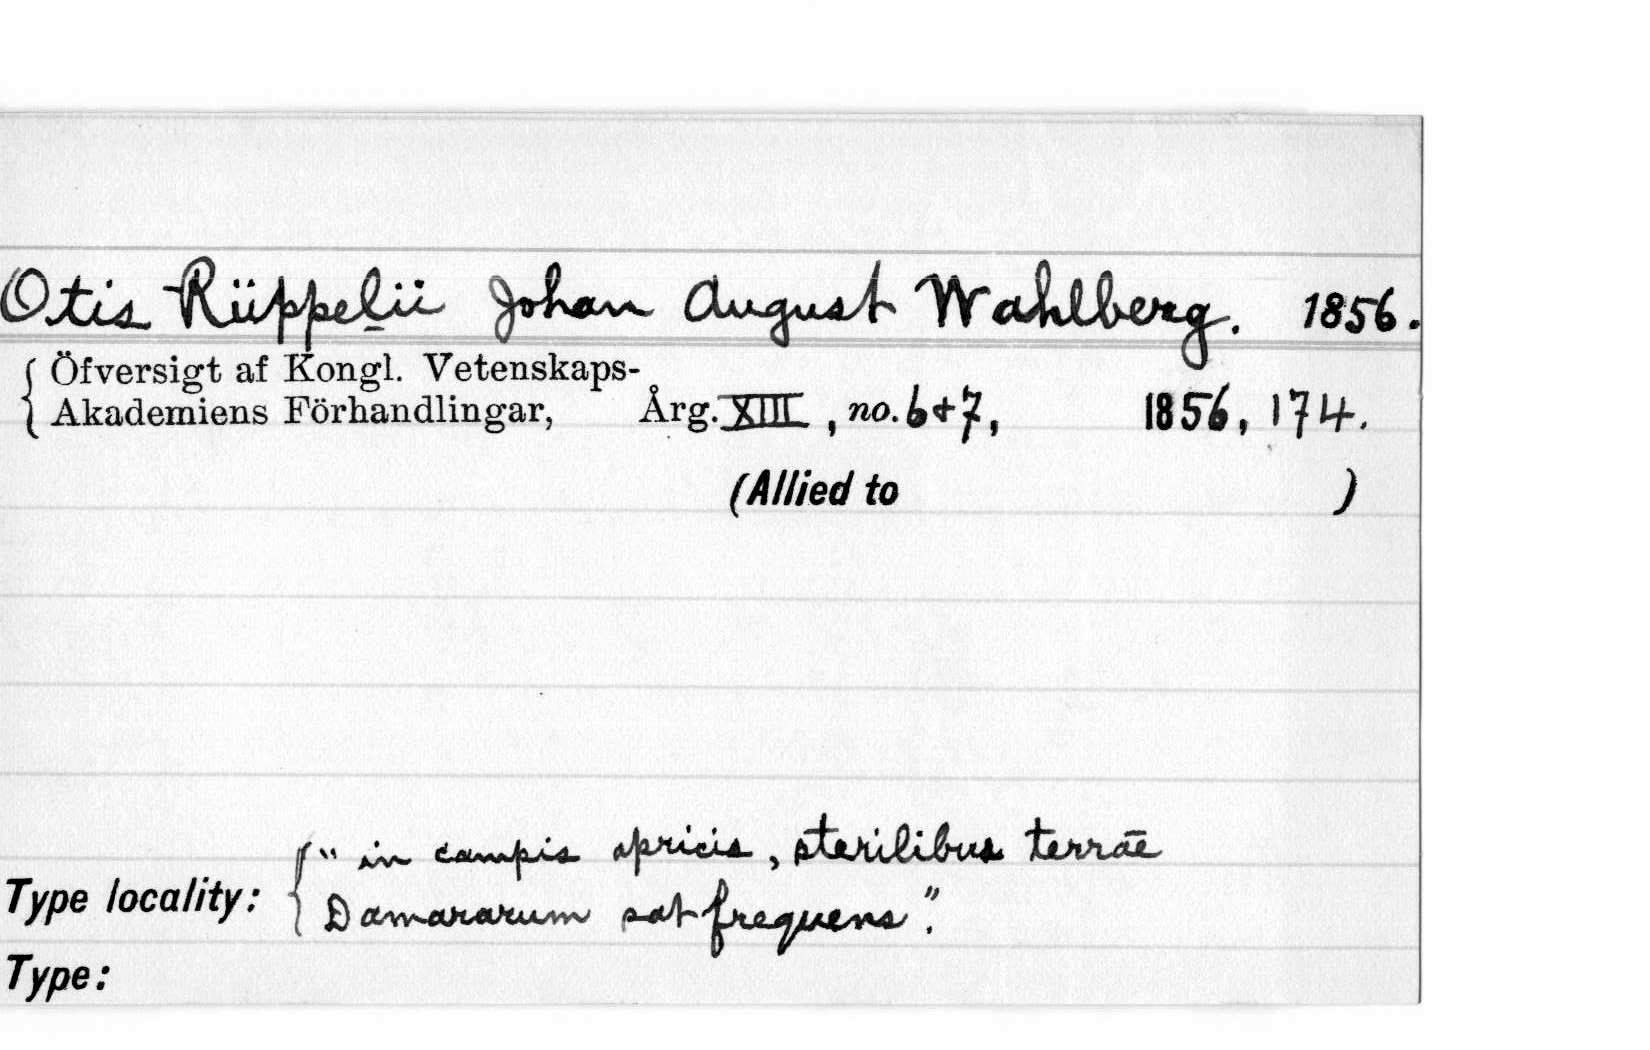 Otis Rüppelii Johan August Wahlberg. 1856.
Öfversigt af Kongl. Vetenskaps-
Akademiens Förhandlingar, Årg. XIII, no. 6+7, 1856, 174.
(Allied to )
"in campis apricis, sterilibus terrae
Type locality: Damararum sat frequens".
Type: